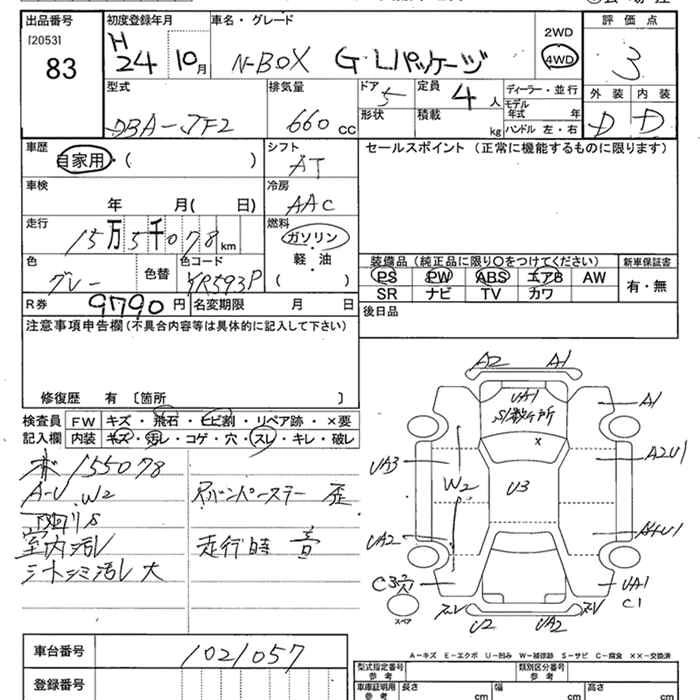 出品番号 初度登録年月 車名・グレード 評価点
[2053] 83
H24 10月 N-BOX G・Lパッケージ 2WD 4WD 3
型式 DBA-JF2 排気量 660cc ドア 5 形状 定員 4人 積載 kg
ディーラー・並行 モデル年式 年 ハンドル 左・右 外装 D 内装 D
車歴 自家用・( ) シフト AT セールスポイント (正常に機能するものに限ります)
車検 年 月( 日) 冷房 AAC
走行 15万5千078km 燃料 ガソリン・軽・油 ( )
色 グレー 色替 色コード YR593P
装備品 (純正品に限り〇をつけてください) 新車保証書
PS PW ABS エアB AW 有・無
SR ナビ TV カワ
R券 9790円 名変期限 月 日 後日品
注意事項申告欄(不具合内容等は具体的に記入して下さい)
修復歴 有 〔箇所 〕
検査員記入欄 FW キズ・飛石・ヒビ割・リペア跡・×要
内装 キズ・汚レ・コゲ・穴・スレ・キレ・破レ
155078
A-U W2
室内汚レ
シートシミ汚レ 大
走行時 音
A2 A1
UA1
S/数ケ所
A1
UA3 W2 U3 A2U1
x
UA2 A4U1
C3穴 UA1
C1
スペア U2 UA2
A-キズ E-エクボ U-凹み W-補修跡 S-サビ C-腐食 ××-交換済
車台番号 1021057
登録番号
型式指定番号 参考 類別区分番号 参考
車庫証明用 参考 長さ cm 幅 cm 高さ cm